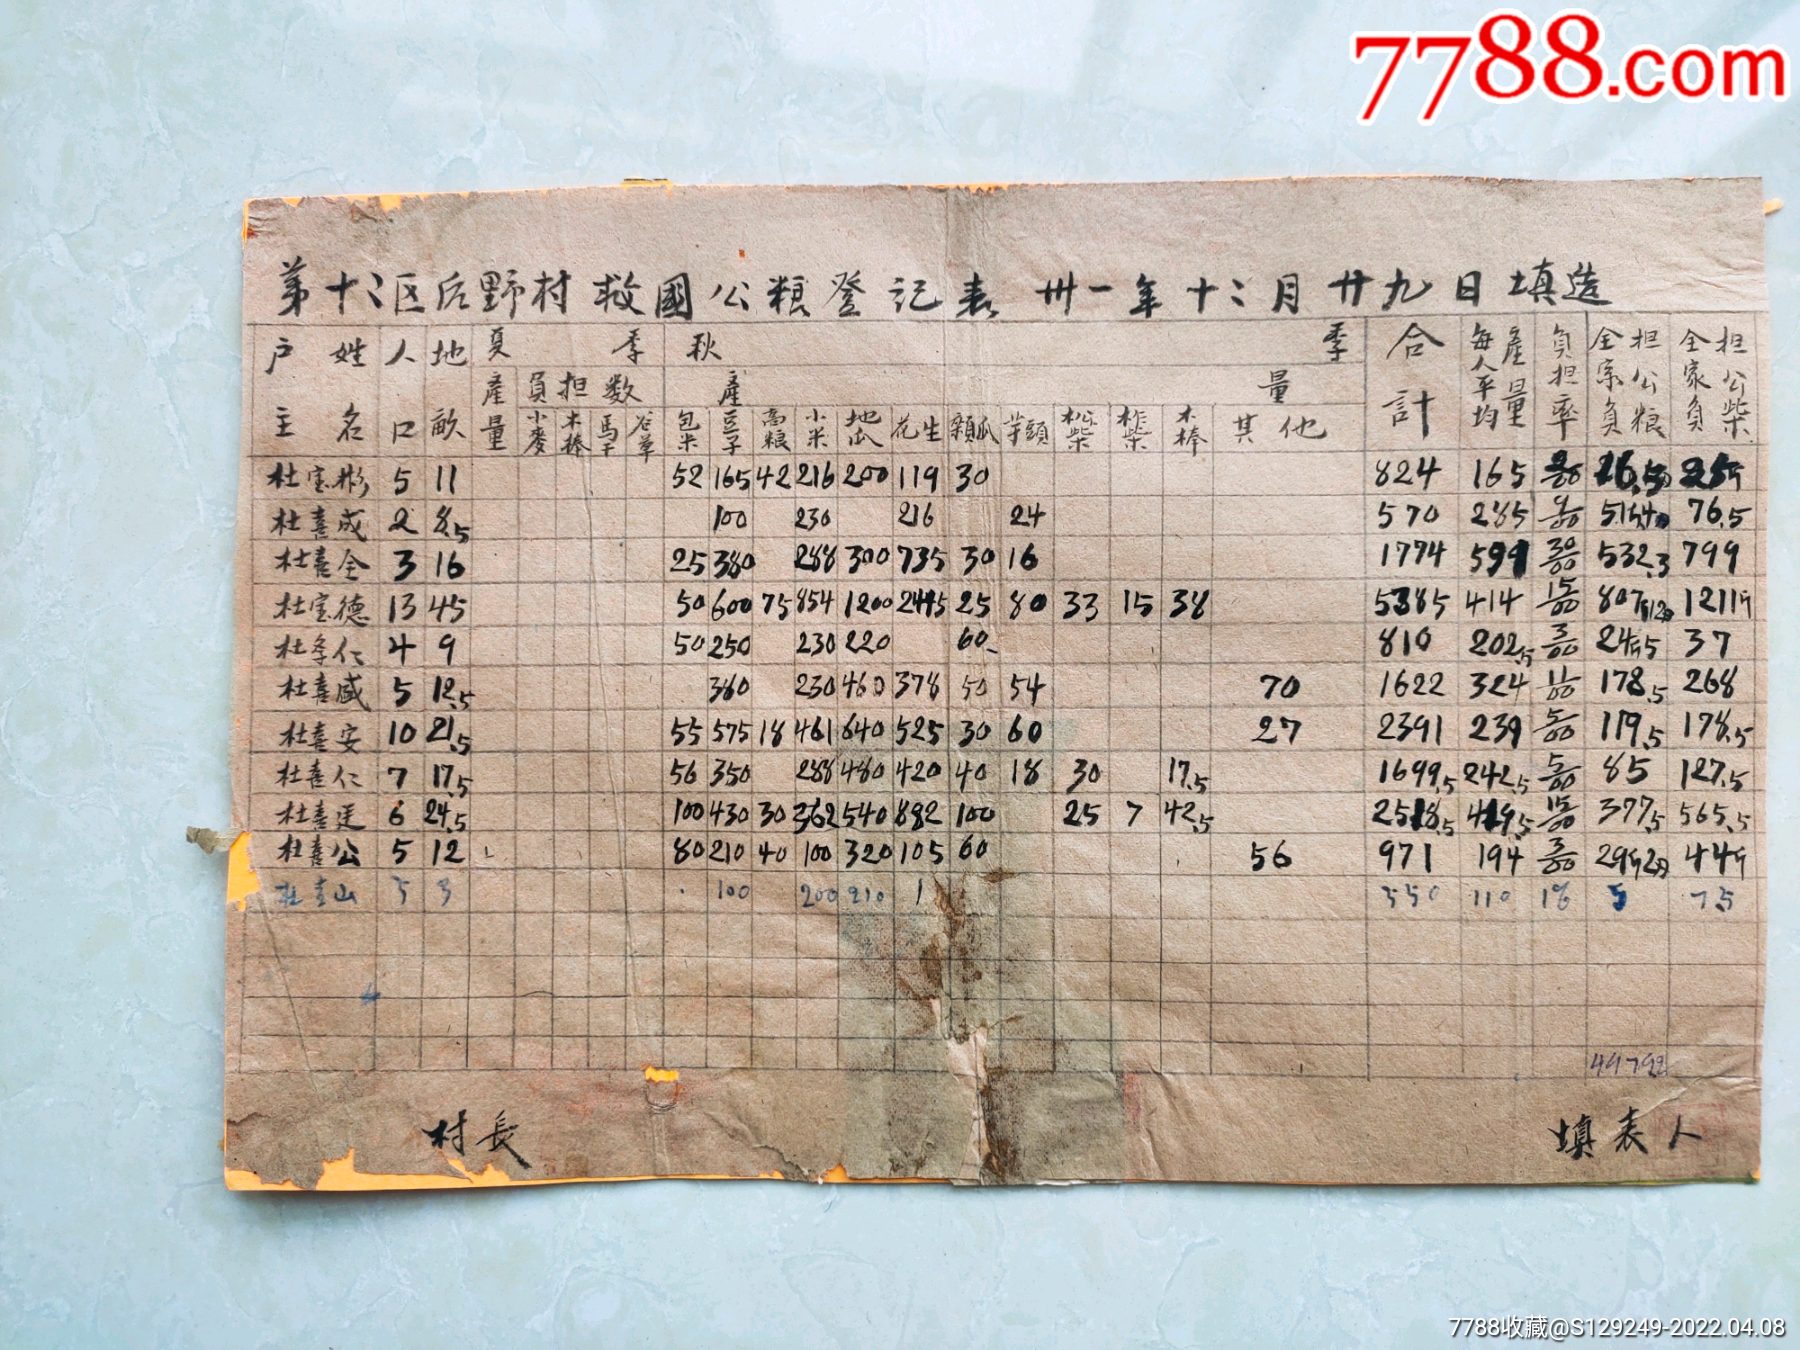 7788.com
第十二区后野村救國公粮登記表 卅一年十二月廿九日填造
户主 姓名 人口 地畝 夏季 秋季 合計 每人平均產量 負担率 全家負担公粮 全家負担公柴
產量 負担数 產量
小麥 木棒 馬干 谷草 包米 豆子 高粮 小米 地瓜 花生 類瓜 芋頭 柴 柴 木棒 其他
杜宝彬 5 11 52 165 42 216 200 119 30 824 165
杜喜成 2 8.5 100 230 216 24 570 285 76.5
杜喜全 3 16 25 380 288 300 735 30 16 1774 30/100 532.3 799
杜宝德 13 45 50 600 75 854 1200 25 80 33 15 38 5385 414 15/100 1211斤
杜季仁 4 9 50 250 230 220 60 810 202.5 3/100 24斤5 37
杜喜盛 5 12.5 380 230 460 378 50 54 70 1622 324 11/100 178.5 268
杜喜安 10 21.5 55 575 18 461 640 525 30 60 27 2391 239 5/100 119.5 178.5
杜喜仁 7 17.5 56 350 288 480 420 40 18 30 17.5 1699.5 242.5 5/100 85 127.5
杜喜廷 6 24.5 100 430 30 362 540 882 100 25 7 42.5 2518.5 419.5 15/100 377.5 565.5
杜喜公 5 12 80 210 40 100 320 105 60 56 971 194 3/100 29斤2两 44斤
杜喜山 5 3 100 200 210 550 110 1% 5 7.5
村長 填表人
7788收藏@S129249-2022.04.08